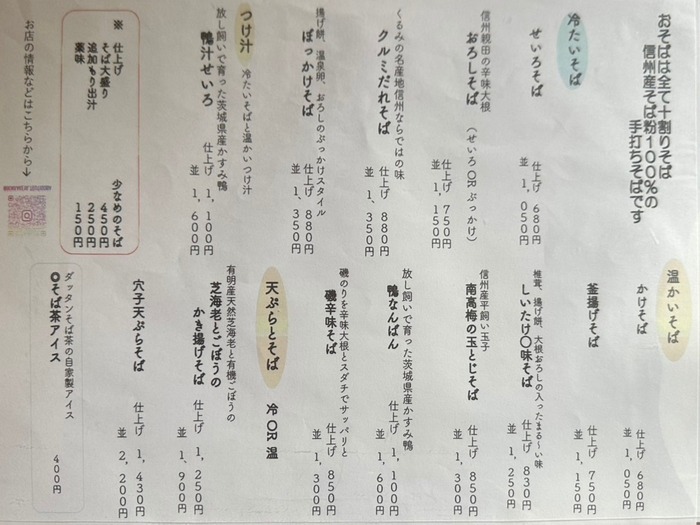 おそばは全て十割りそば
信州産そば粉100%の
手打ちそばです
冷たいそば
せいろそば
仕上げ 680円
並 1,050円
信州親田の辛味大根
おろしそば (せいろORぶっかけ)
仕上げ 750円
並 1,150円
くるみの名産地信州ならではの味
クルミだれそば
仕上げ 880円
並 1,350円
揚げ餅、温泉卵、おろしのぶっかけスタイル
ぽっかけそば
仕上げ 880円
並 1,350円
つけ汁 冷たいそばと温かいつけ汁
放し飼いで育った茨城県産かすみ鴨
鴨汁せいろ
仕上げ 1,100円
並 1,600円
※ 仕上げ 少なめのそば
そば大盛り 450円
追加もり出汁 250円
薬味 150円
お店の情報などはこちらから↓
温かいそば
かけそば
仕上げ 680円
並 1,050円
釜揚げそば
仕上げ 750円
並 1,150円
椎茸、揚げ餅、大根おろしの入ったまる〜い味
しいたけ〇味そば
仕上げ 830円
並 1,250円
信州産平飼い玉子
南高梅の玉とじそば
仕上げ 850円
並 1,300円
放し飼いで育った茨城県産かすみ鴨
鴨なんばん
仕上げ 1,100円
並 1,600円
磯のりを辛味大根とスダチでサッパリと
磯辛味そば
仕上げ 850円
並 1,300円
天ぷらとそば 冷OR温
有明産天然芝海老と有機ごぼうの
芝海老とごぼうの
かき揚げそば
仕上げ 1,250円
並 1,900円
穴子天ぷらそば
仕上げ 1,430円
並 2,200円
ダッタンそば茶の自家製アイス
〇そば茶アイス 400円